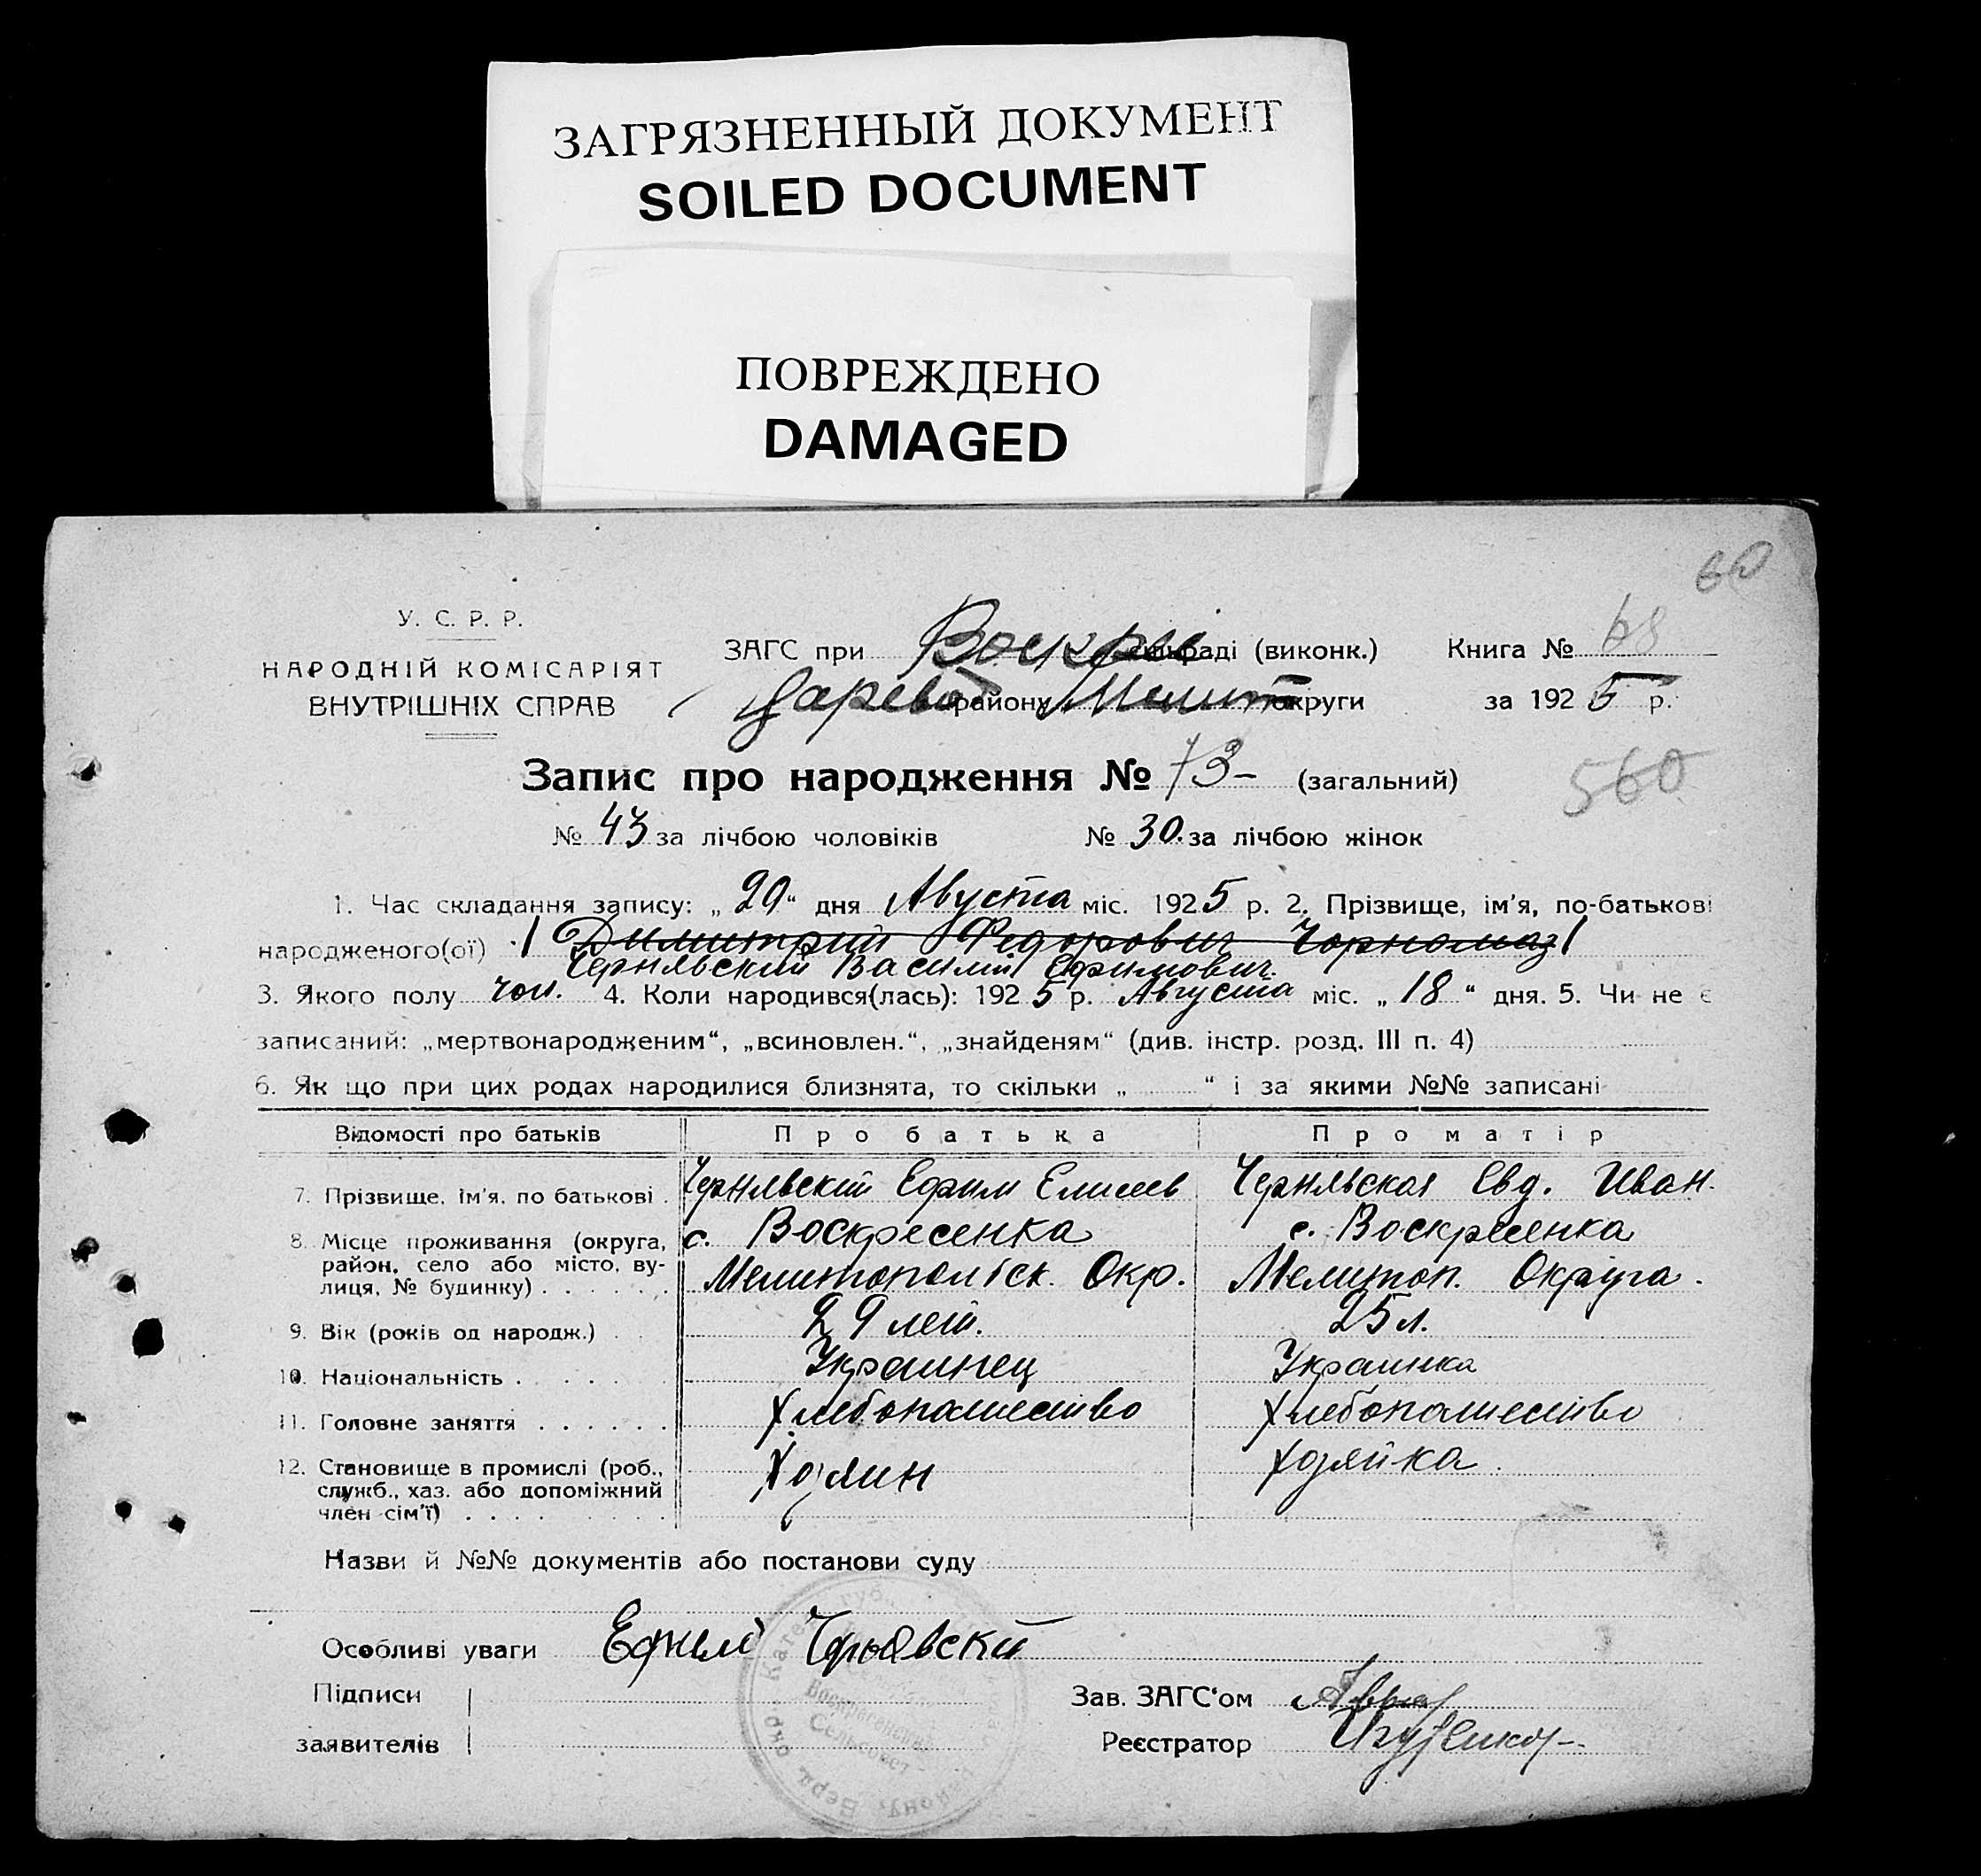 ЗАГРЯЗНЕННЫЙ ДОКУМЕНТ
SOILED DOCUMENT
ПОВРЕЖДЕНО
DAMAGED
60
У. С. Р. Р.
НАРОДНІЙ КОМІСАРІЯТ
ВНУТРІШНІХ СПРАВ
ЗАГС при Воскрес сільраді (виконк.) Книга № 68
Царево району Мелит округи за 1925 р.
Запис про народження № 73 (загальний)
560
№ 43 за лічбою чоловіків № 30. за лічбою жінок
1. Час складання запису: „29" дня Августа міс. 1925 р. 2. Прізвище, ім'я, по-батькові
народженого(ої) Димитрий Федорович Чорномаз
Чернявский Василий Ефимович.
3. Якого полу чол. 4. Коли народився(лась): 1925 р. Августа міс. „18" дня. 5. Чи не є
записаний: „мертвонародженим", „всиновлен.", „знайденям" (див. інстр. розд. III п. 4)
6. Як що при цих родах народилися близнята, то скільки „ " і за якими №№ записані
Відомості про батьків Про батька Про матір
7. Прізвище, ім'я, по батькові Чернявский Ефим Елисеев Чернявская Евд. Иван.
8. Місце проживання (округа, район, село або місто, вулиця, № будинку) с. Воскресенка с. Воскресенка
Мелитопольск. Окр. Мелитоп. Округа.
9. Вік (років од народж.) 29 лет. 25 л.
10. Національність Украинец Украинка
11. Головне заняття Хлебопашество Хлебопашество
12. Становище в промислі (роб., служб., хаз. або допоміжний член сім'ї) Хозяин Хозяйка
Назви й №№ документів або постанови суду
Особливі уваги Ефим Чернявский
Підписи Зав. ЗАГС'ом
заявителів Реєстратор
Воскресенский
Сельсовет